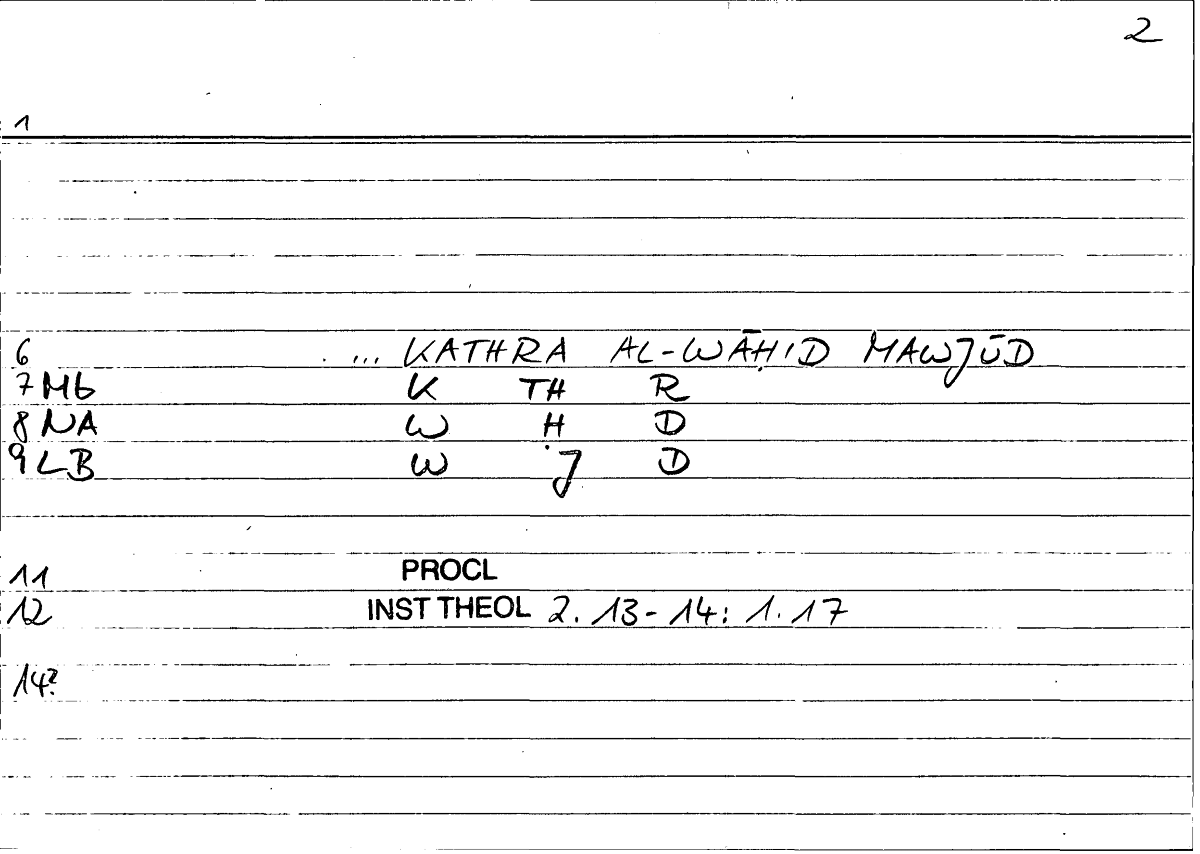 2
1
6 ... KATHRA AL-WĀḤID MAWJŪD
7 Mb K TH R
8 NA W Ḥ D
9 LB W J D
11 PROCL
12 INST THEOL 2. 13-14: 1. 17
14?